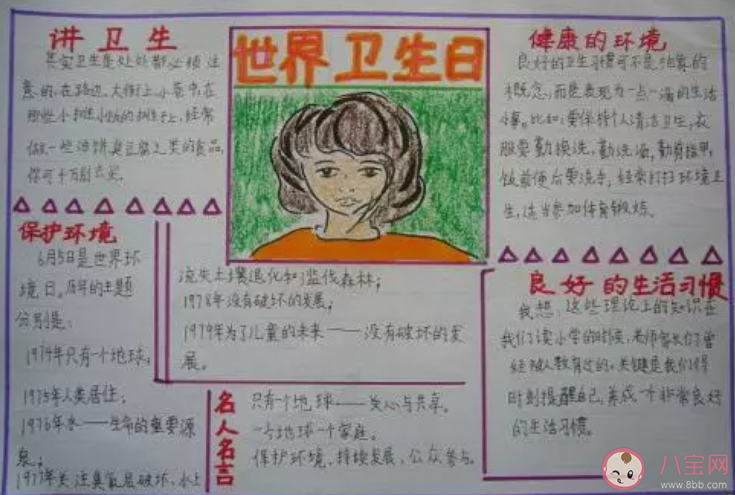 讲卫生
其实卫生是处处都必须注
意的,在路边、大街上、小巷中,在
那些小摊小贩的摊子上,经常
做一些油饼臭豆腐之类的食品,
你可千万别去买。
世界卫生日
健康的环境
良好的卫生习惯可不是抽象的
概念,而是表现为一点一滴的生活
小事。比如:要保持个人清洁卫生,衣
服要勤换洗、勤洗澡,勤剪指甲,
饭前便后要洗手,经常打扫环境卫
生,适当参加体育锻炼。
保护环境
6月5日是世界环
境日。历年的主题
分别是:
1974年只有一个地球;
1975年人类居住;
1976年水——生命的重要源
泉;
1977年关注臭氧层破坏,水土
流失土壤退化和滥伐森林;
1978年没有破坏的发展;
1979年为了儿童的未来——没有破坏的发
展。
名人名言
只有一个地球——关心与共享。
一个地球一个家庭。
保护环境、持续发展、公众参与。
良好的生活习惯
我想,这些理论上的知识在
我们读小学的时候,老师家长们曾
经教育过的,关键是我们得
时刻提醒自己,养成一个非常良好
的生活习惯。
八宝网
www.8bb.com